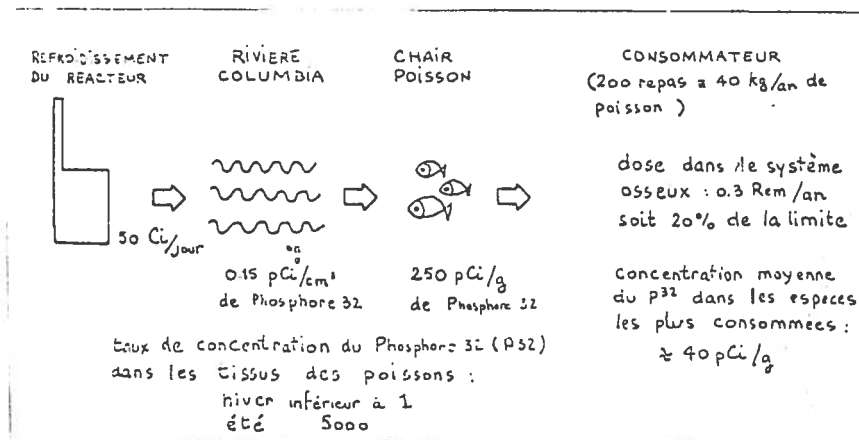 REFROIDISSEMENT
DU REACTEUR
50 Ci/jour
RIVIERE
COLUMBIA
ou
g
0.15 pCi/cm³
de Phosphore 32
CHAIR
POISSON
250 pCi/g
de Phosphore 32
CONSOMMATEUR
(200 repas a 40 kg/an de
poisson)
dose dans le système
osseux : 0.3 Rem/an
soit 20% de la limite
concentration moyenne
du P³² dans les especes
les plus consommées :
≈ 40 pCi/g
taux de concentration du Phosphore 32 (P32)
dans les tissus des poissons :
hiver inférieur à 1
été 5000